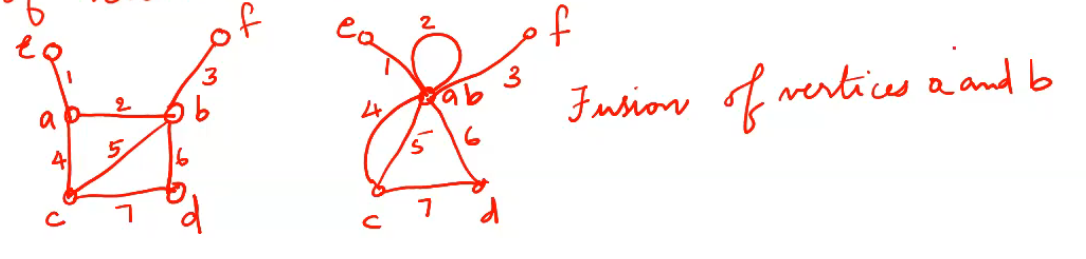 of
e
f
1
3
a
2
b
4
5
6
c
7
d
e
2
f
1
3
4
ab
5
6
c
7
d
Fusion of vertices a and b